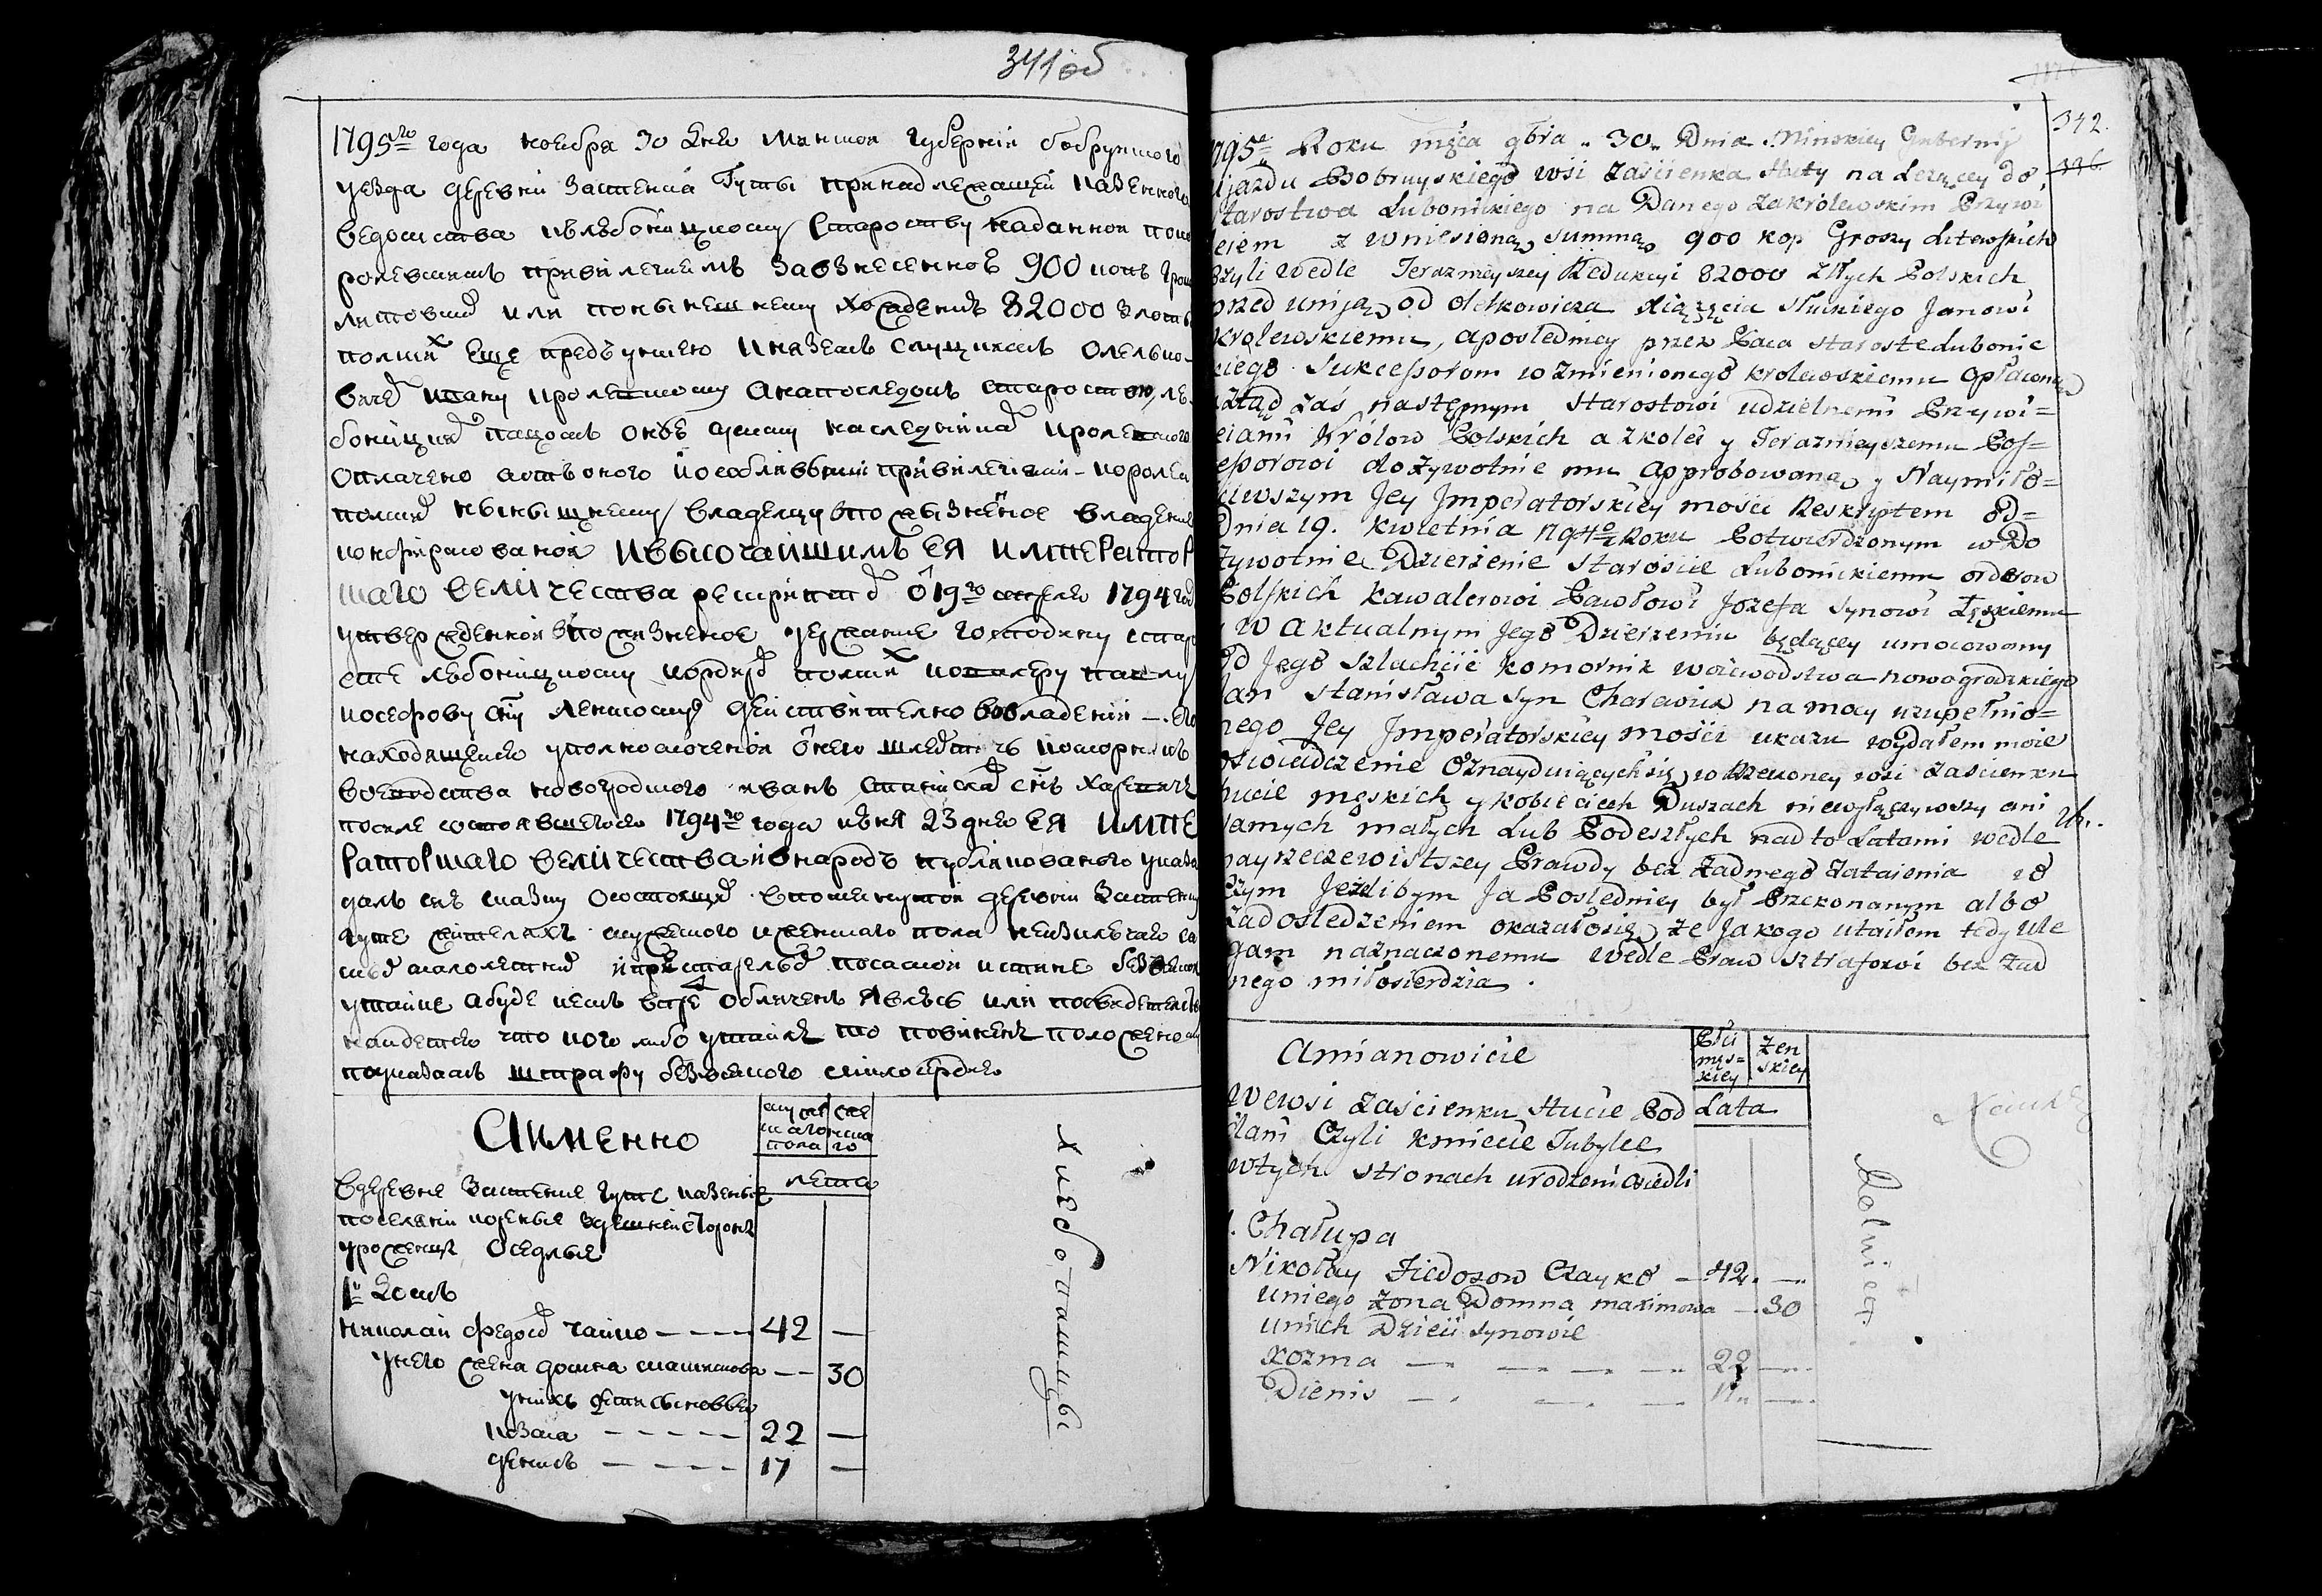 341об
1795го года ноебря 30 дня Минской губернiи бобруйского
уезда деревни Застенка Гуты принадлежащей казенного
ведомства къ любоницкому староству наданной
ролевским привилегием за взнесенною 900 копъ
литовских или по нынешнему хождению 82000 злоты
польских еще предъ униею князем слуцким Олелько-
вичем пану кролевскому а напоследокъ старостою лю-
боницким пацом оное оному наследникам кролевского
оплачено
польских нынышнему владельцу в пожызненое владение
конфирмованой и высочайшимъ ЕЯ ИМПЕРатор
шаго ВЕЛИЧЕства рескриптом 19го апреля 1794 год
утвержденной в пожизненое держание господину стар
сте любоницкому и орденов польских кавалеру павлу
иосефову сыну Ленскому действително во владении его
находящиеся уполномоченой от него шляхтич коморникъ
воеводства новогродского иванъ станиславов снъ Харевичъ
после состоявшегося 1794го года июня 23 дня ЕЯ ИМПЕ
Раторшаго ВЕЛИЧЕства и в народъ публикованого указа
далъ сию сказку о состоящих в помянутой деревни Застенку
Гуте жителях мужеского и женского пола не изключая са
мых малолетних и престарелых по самой истине без всякой
утайки а буде кемъ в чем обличенъ явлюсь или по свидетельству
найдется что кого либо утаилъ то повиненъ положеному
по указамъ штрафу без всякого милосердия
Аименно
мужескаго пола
женскаго
лета
В деревне Застенке Гуте казенные
поселяни коренные здешней стороны
уроженцы оседлые
1й Домъ
николай федосов чайко — — — 42 —
у него жена домна максимова — — 30
у них дети сыновья
козма — — — — 22 —
денис — — — — 17 —
Хлебопашцы
342.
336.
1795 Roku mșca 9bra „ 30 „ Dnia Minskiey Gubernij
Ujazdu Bobruyskiego wsi Zascienka Huty na Leżącey do
Starostwa Lubonickiego na Danego Zakrolewskim Przywi
leiem z wniesioną summą 900 kop Groszy Litewskich
Czyli wedle Terazmieyszey Redukcyi 82000 złłych Polskich
przed uniją od Olelkowicza Xiążęcia Słuckiego Janowi
krolewskiemu, a posledniey przez Paca staroste Lubonic
kiego Sukcessorom wzmienionego krolewskiemu opłaconą
ztąd zaś następnym Starostowi udzielnemi Przywi=
leiami Królow Polskich a z kolei y Terazmieyszemu Pos=
sessorowi dożywotnie mu approbowaną y Naymiło=
sciwszym Jey Jmperatorskiey mości Reskryptem od=
Dnia 19. kwietnia 1794o Roku Potwierdzonym w Do
żywotnie Dzierżenie Staroscie Lubonickiemu orderow
Polskich Kawalerowi Pawłowi Jozefa Synowi Łęskiemu
w aktualnym Jego Dzierżeniu będącey umocowony
od Jego Szlachcic komornik woiewodstwa nowogrodzkiego
Jan Stanisława syn Charewicz na mocy uzupełnio=
nego Jey Jmperatorskiey mości ukazu wydałem moie
oswiadczenie O znayduiących się w Rzeczoney wsi Zascienku
Hucie męskich y kobiecich Duszach niewyłączywszy ani
samych małych Lub Podeszłych nad to Latami wedle
nayrzeczewistszey Prawdy bez Żadnego Zataienia w
Czym Jeżelibym Ja Posledniey był Przekonanym albo
Zadosledzeniem okazało się że Jakogo utaiłem tedy ule
gam naznaczonemu wedle Praw sztrafowi bez Żad
nego miłosierdzia .
Amianowicie
Płci męs=kiey
Żen skiey
Wewsi Zaścienku Hucie Pod
Lata
dani Czyli kmiecie Tubylce
wtych stronach urodzeni osiedli
1. Chałupa
Nikołay Fiedosow Czayko — 42. —
uniego żona Domna maximowa — 30
unich Dzieci synowie
Kozma — — — — 22 —
Dienis — — — —
Rolnicy